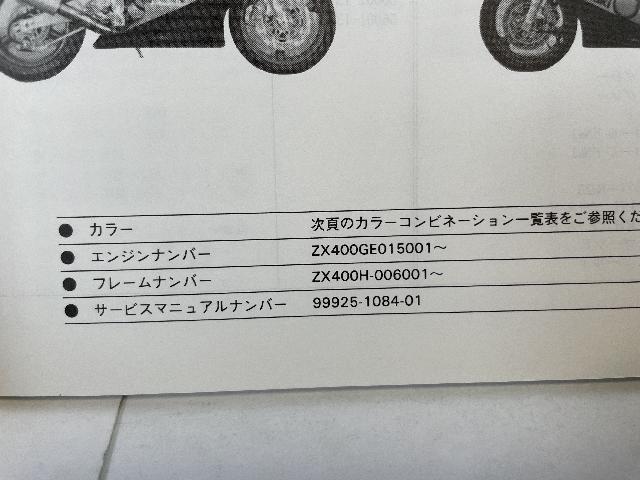 ● カラー 次頁のカラーコンビネーション一覧表をご参照くだ
● エンジンナンバー ZX400GE015001〜
● フレームナンバー ZX400H-006001〜
● サービスマニュアルナンバー 99925-1084-01